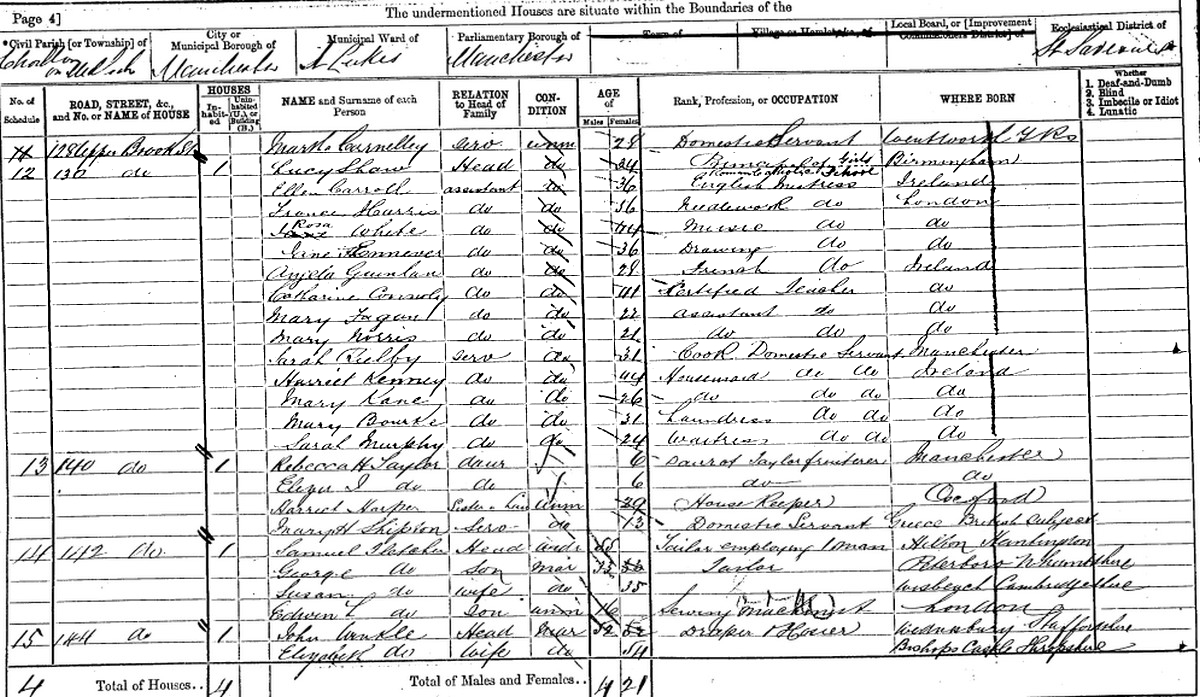 Page 4] The undermentioned Houses are situate within the Boundaries of the
*Civil Parish [or Township] of City or Municipal Borough of Municipal Ward of Parliamentary Borough of Town of Village or Hamlet, &c., of Local Board, or [Improvement Commissioners District] of Ecclesiastical District of
Manchester St Lukes Manchester St Saviours
No. of Schedule ROAD, STREET, &c., and No. or NAME of HOUSE HOUSES Inhabited Uninhabited (U.), or Building (B.) NAME and Surname of each Person RELATION to Head of Family CONDITION AGE of Males Females Rank, Profession, or OCCUPATION WHERE BORN Whether 1. Deaf-and-Dumb 2. Blind 3. Imbecile or Idiot 4. Lunatic
11 128 Upper Brook St Serv unm 28 Domestic Servant Wentworth Yks
12 130 do 1 Lucy Shaw Head do 34 Roman Catholic Girls School Birmingham
Ellen Carroll assistant do 36 English Mistress Ireland
Harris do do 36 Needlework do London
Rosa White do do 44 Music do do
do do 36 Drawing do do
do do 28 French do Ireland
Catharine Connoly do do 41 Certified Teacher do
Mary Fagan do do 22 assistant do do
Mary Norris do do 21 do do do
Sarah serv do 31 Cook Domestic Servant Manchester
Harriet Kenney do do 44 Housemaid do do Ireland
Mary Kane do do 26 do do do do
Mary Bourke do do 31 Laundress do do do
Sarah Murphy do do 24 Waitress do do do
13 140 do 1 Rebecca H Taylor daur 6 daur of Taylor fruiterer Manchester
Eliza J do do 6 do do
Harriet Harper Sister in Law unm 29 House Keeper
Mary H Shipton Serv do 13 Domestic Servant Greece British Subject
14 142 do 1 Samuel Fletcher Head Tailor employing 1 man Hilton Huntington
George do Son mar 33 Tailor Peterboro
Susan do wife do 35 Wisbeach Cambridgeshire
Edwin L do Son unm 16 Sewing Machinist London
15 144 do 1 John Winkle Head Mar 52 Draper & Hosier Wednesbury Staffordshire
Elizabeth do Wife do 54 Bishops Castle Shropshire
4 Total of Houses.. 4 Total of Males and Females.. 4 21